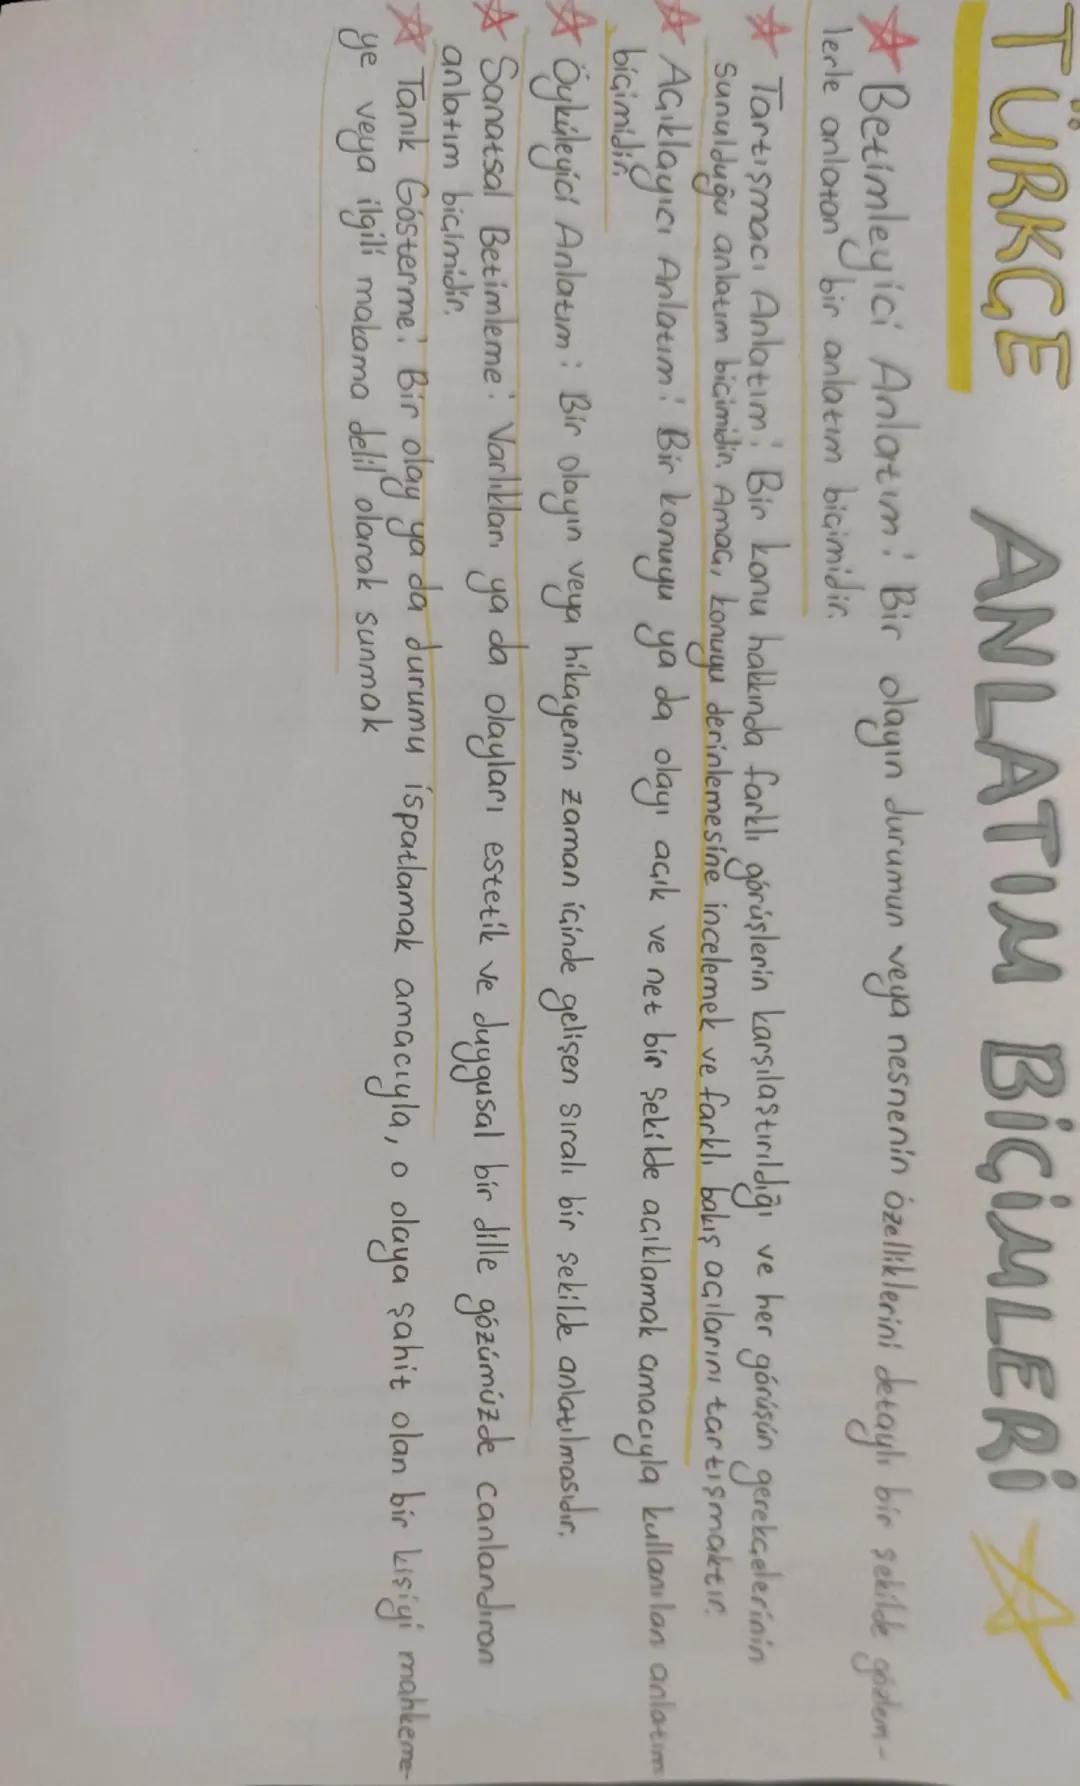 TÜRKÇE ANLATIM BİÇİMLERİ
Betimleyici Anlatım: Bir olayın durumun veya nesnenin özelliklerini detaylı bir şekilde gözlem-
lerle anlatan bir anlatım biçimidir.
Tartışmacı Anlatım: Bir konu hakkında farklı görüşlerin karşılaştırıldığı ve her görüşün gerekçelerinin
sunulduğu anlatım biçimidir. Amacı, konuyu derinlemesine incelemek ve farklı bakış açılarını tartışmaktır.
Açıklayıcı Anlatım: Bir konuyu ya da olayı açık ve net bir şekilde açıklamak amacıyla kullanılan anlatım
biçimidir.
Öyküleyici Anlatım: Bir olayın veya hikayenin zaman içinde gelişen sıralı bir şekilde anlatılmasıdır.
Sanatsal Betimleme: Varlıkları ya da olayları estetik ve duygusal bir dille gözümüzde canlandıran
anlatım biçimidir.
Tanık Gösterme: Bir olay ya da durumu ispatlamak amacıyla, o olaya şahit olan bir kişiyi mahkeme-
ye veya ilgili makama delil olarak sunmak